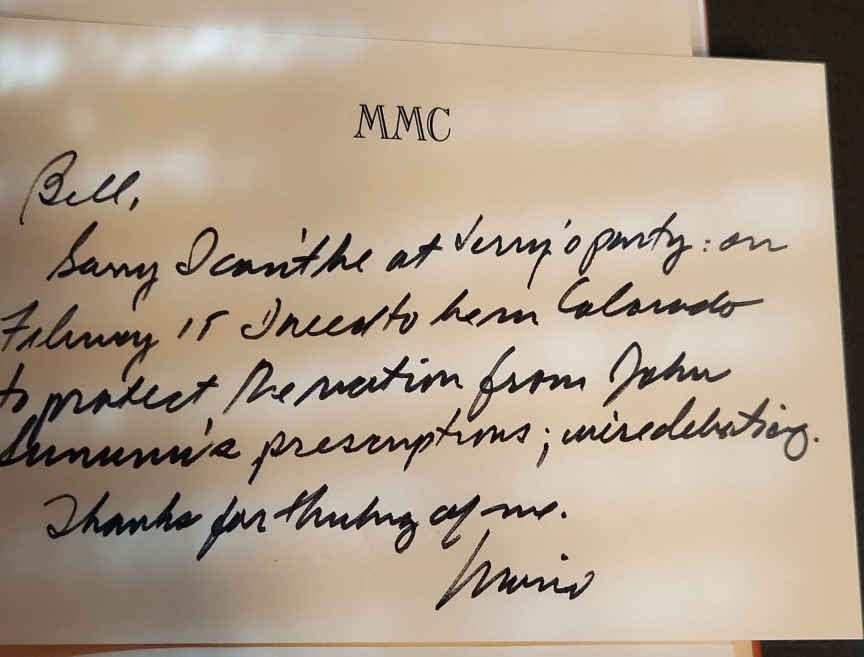 MMC
Bill,
Sorry I can't be at Jerry's party: on
February 15 I need to be in Colorado
to protect the nation from John
Sununu's prescriptions; we're debating.
Thanks for thinking of me.
Mario